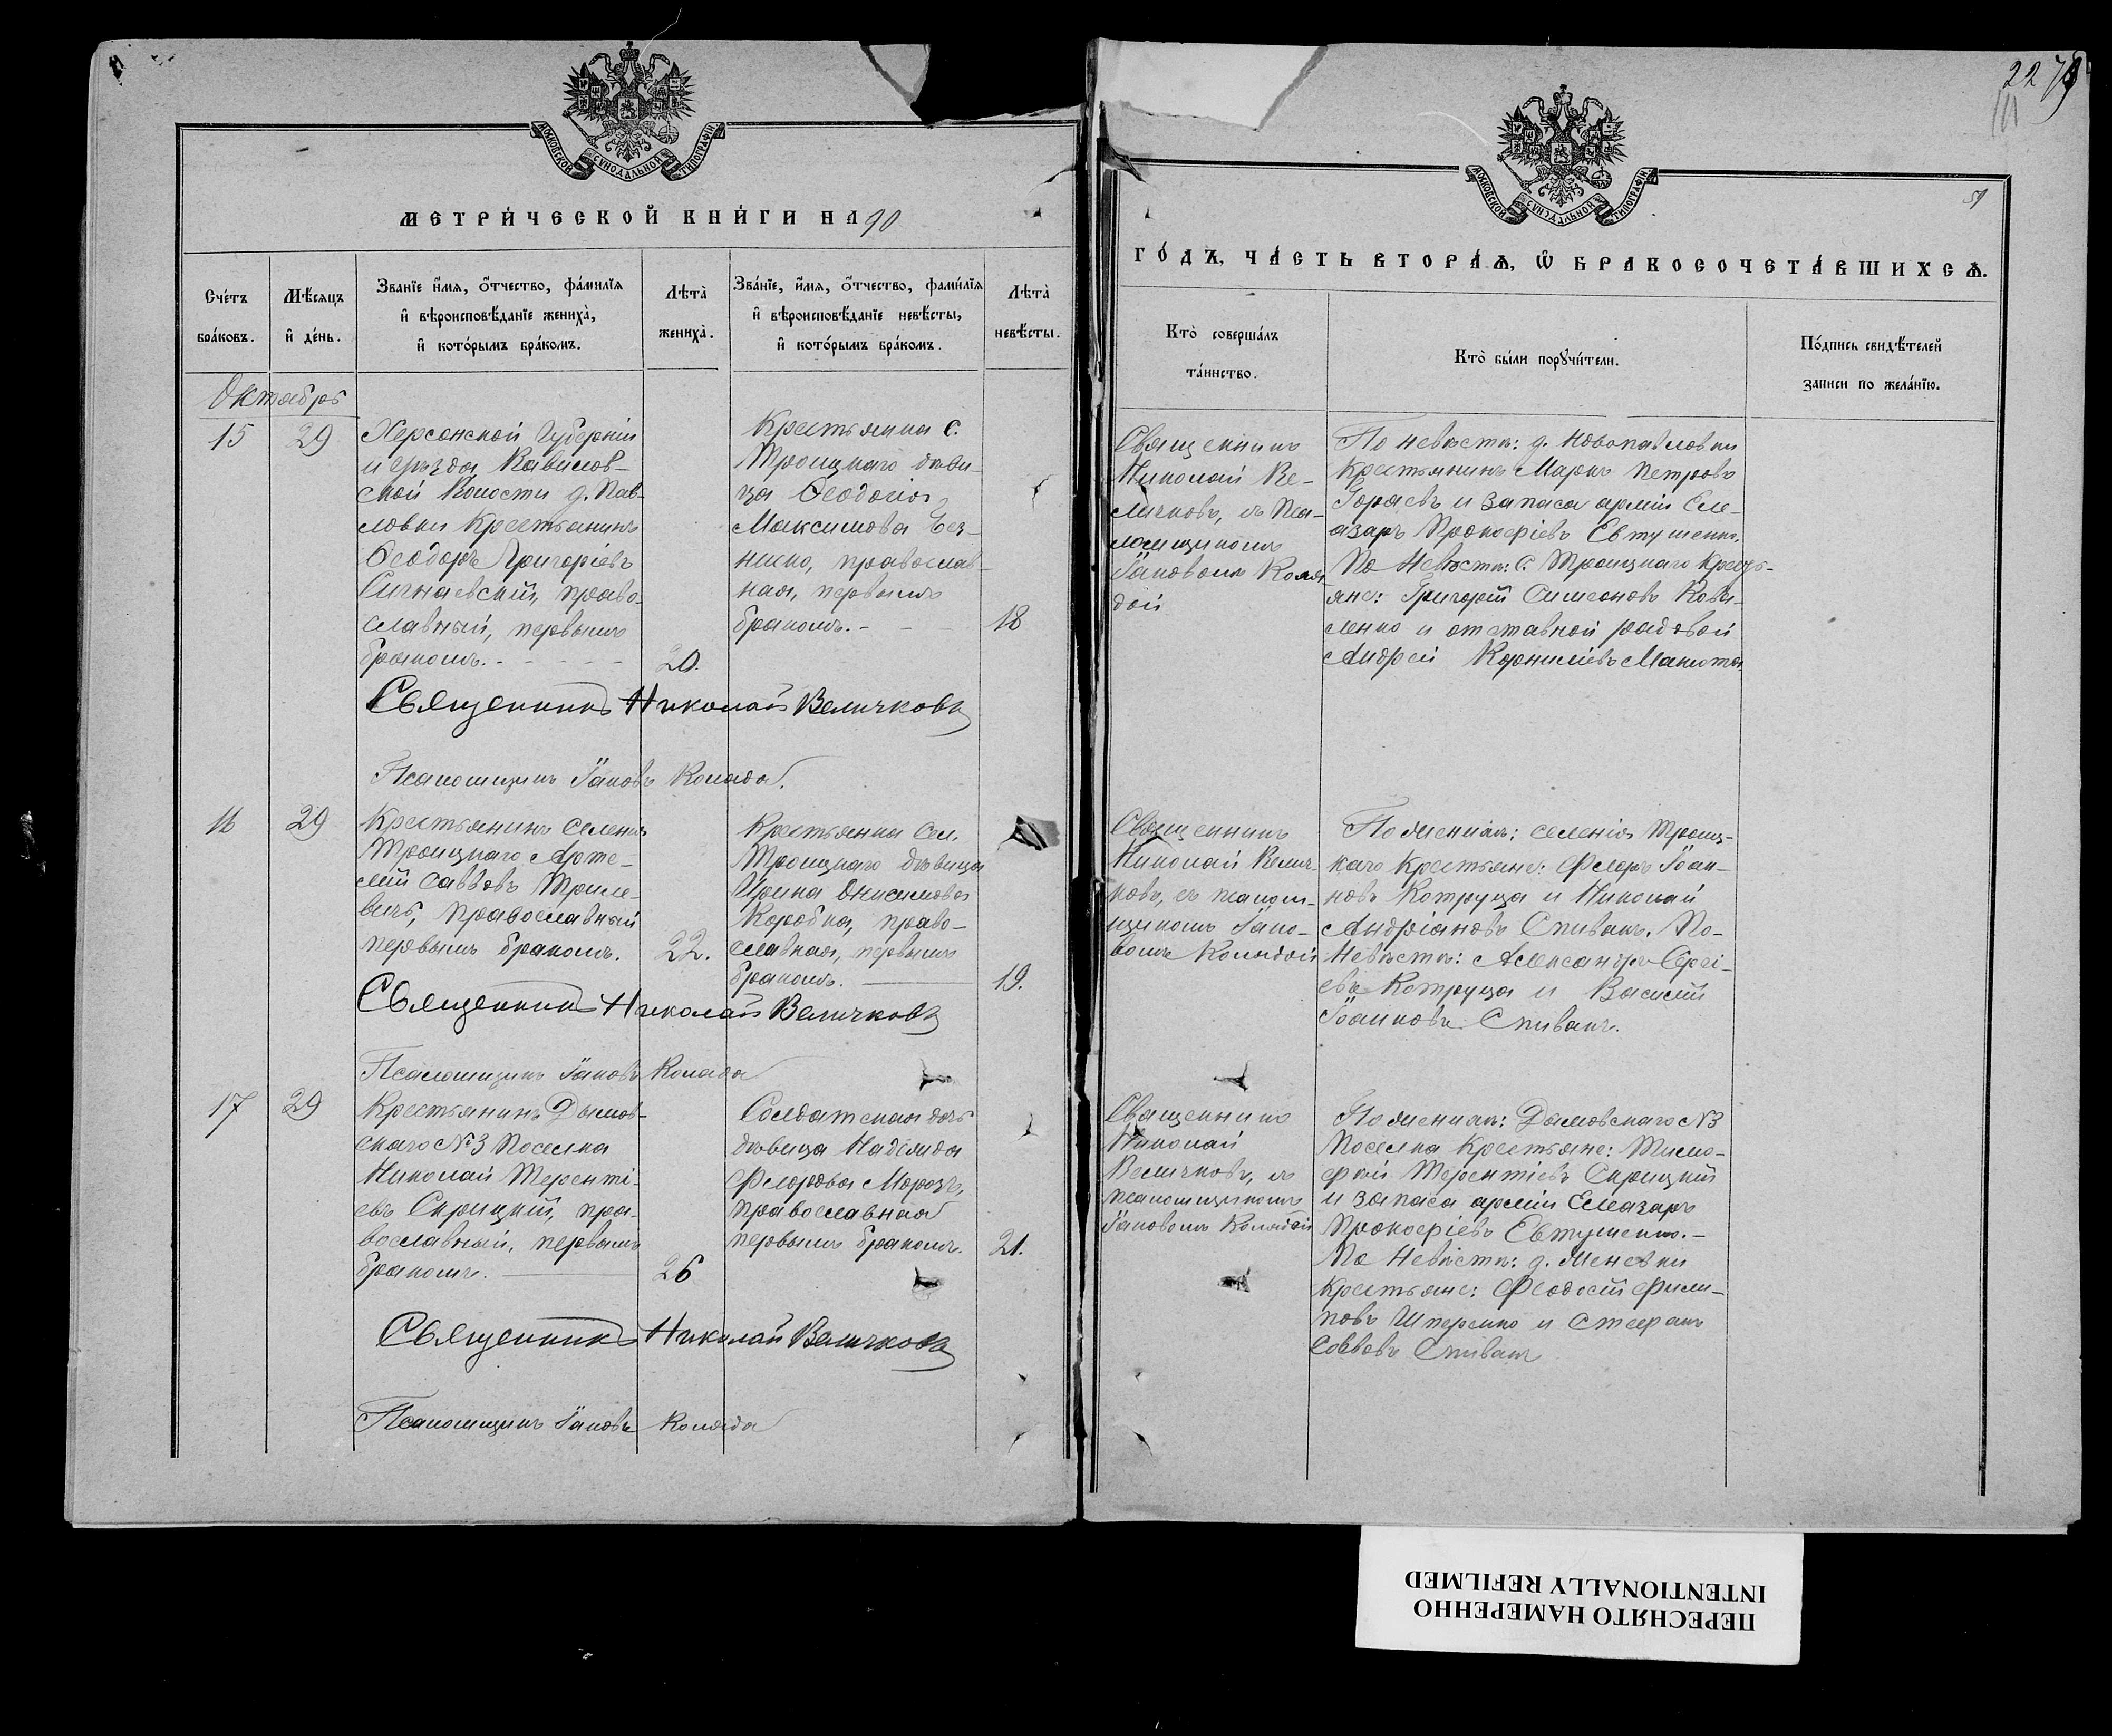 МОСКОВСКОЙ СѴНОДАЛЬНОЙ ТИПОГРАФІИ
МЕТРИ́ЧЕСКОЙ КНИ́ГИ НА 90
Сче́тъ бра́ковъ.
Мѣ́сяцъ и҆ де́нь.
Зва́нїе и҆́мѧ, ѻ҆́тчество, фамилїѧ
и҆ вѣроисповѣ́данїе жениха̀,
и҆ кото́рымъ бра́комъ.
Лѣта̀ жениха̀.
Зва́нїе, и҆́мѧ, ѻ҆́тчество, фами́лїѧ
и҆ вѣроисповѣ́данїе невѣ́сты,
и҆ кото́рымъ бра́комъ.
Лѣта̀ невѣ́сты.
Октябрь
15
29
Херсонской Губерніи
и уѣзда Кавилов-
ской Волости д. Пав-
ловки Крестьянинъ
Ѳеодоръ Григоріевъ
православный, первымъ
бракомъ.
20.
Крестьянка с.
Троицкаго дѣви-
ца Ѳеодосія
Максимова
православ-
ная, первымъ
бракомъ.
18
Священникъ Николай Величковъ
Псаломщикъ Іаковъ Коляда
16
29
Крестьянинъ Селенія
Троицкаго Арте-
мій Саввовъ
православный
первымъ бракомъ.
22.
Крестьянка Сел.
Троицкаго дѣвица
Ирина Онисимова
Коробка, право-
славная, первымъ
бракомъ.
19.
Священникъ Николай Величковъ
Псаломщикъ Іаковъ Коляда
17
29
Крестьянинъ Дымов-
скаго №3 Поселка
Николай Теренті-
евъ Скрицкій, пра-
вославный, первымъ
бракомъ.
26
Солдатская дочь
дѣвица Надежда
Ѳеодорова Морозъ,
православная
первымъ бракомъ.
21.
Священникъ Николай Величковъ
Псаломщикъ Іаковъ Коляда
2279
51
МОСКОВСКОЙ СѴНОДАЛЬНОЙ ТИПОГРАФІИ
ГО́ДЪ, ЧА́СТЬ ВТОРА́Ѧ, Ѽ БРАКОСОЧЕТА́ВШИХСѦ.
Кто̀ соверша́лъ
та́инство.
Кто̀ бы́ли порꙋчи́тели.
По́дпись свидѣ́телей
записи по жела́нїю.
Священникъ
Николай Ве-
личковъ, съ Пса-
ломщикомъ
Іаковомъ Коля
дой
По невѣстѣ: д. Новопавловки
Крестьянинъ Маркъ Петровъ
и запаса арміи Еле-
азаръ Прокофіевъ Евтушенко.
По Невѣстѣ: С. Троицкаго Кресть-
яне: Григорій Симеоновъ Кова-
ленко и отставной рядовой
Андрей Корниліевъ
Священникъ
Николай Велич-
ковъ, съ псалом-
щикомъ Іако-
вомъ Колядой
По женихѣ: селенія Троиц-
каго Крестьяне: Ѳеодоръ Іоан-
новъ Котруца и Николай
Андріановъ Спивакъ. По
Невѣстѣ: Александръ Сергі-
евъ Котруца и Василій
Іоанновъ Спивакъ.
Священникъ
Николай
Величковъ, съ
псаломщикомъ
Іаковомъ Колядой
По женихѣ: Дымовскаго №3
Поселка Крестьяне: Тимо-
фей Терентіевъ Скрицкій
и запаса арміи Елеазаръ
Прокофіевъ Евтушенко.-
По Невѣстѣ: д.
Крестьяне: Ѳеодосій Фили-
повъ и Стефанъ
Саввовъ Спивакъ
ПЕРЕСНЯТО НАМЕРЕННО
INTENTIONALLY REFILMED